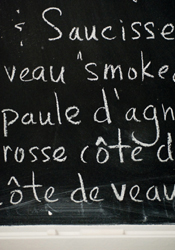 & Saucisse
veau "smoke
paule d'agn
rosse côte d
côte de veau